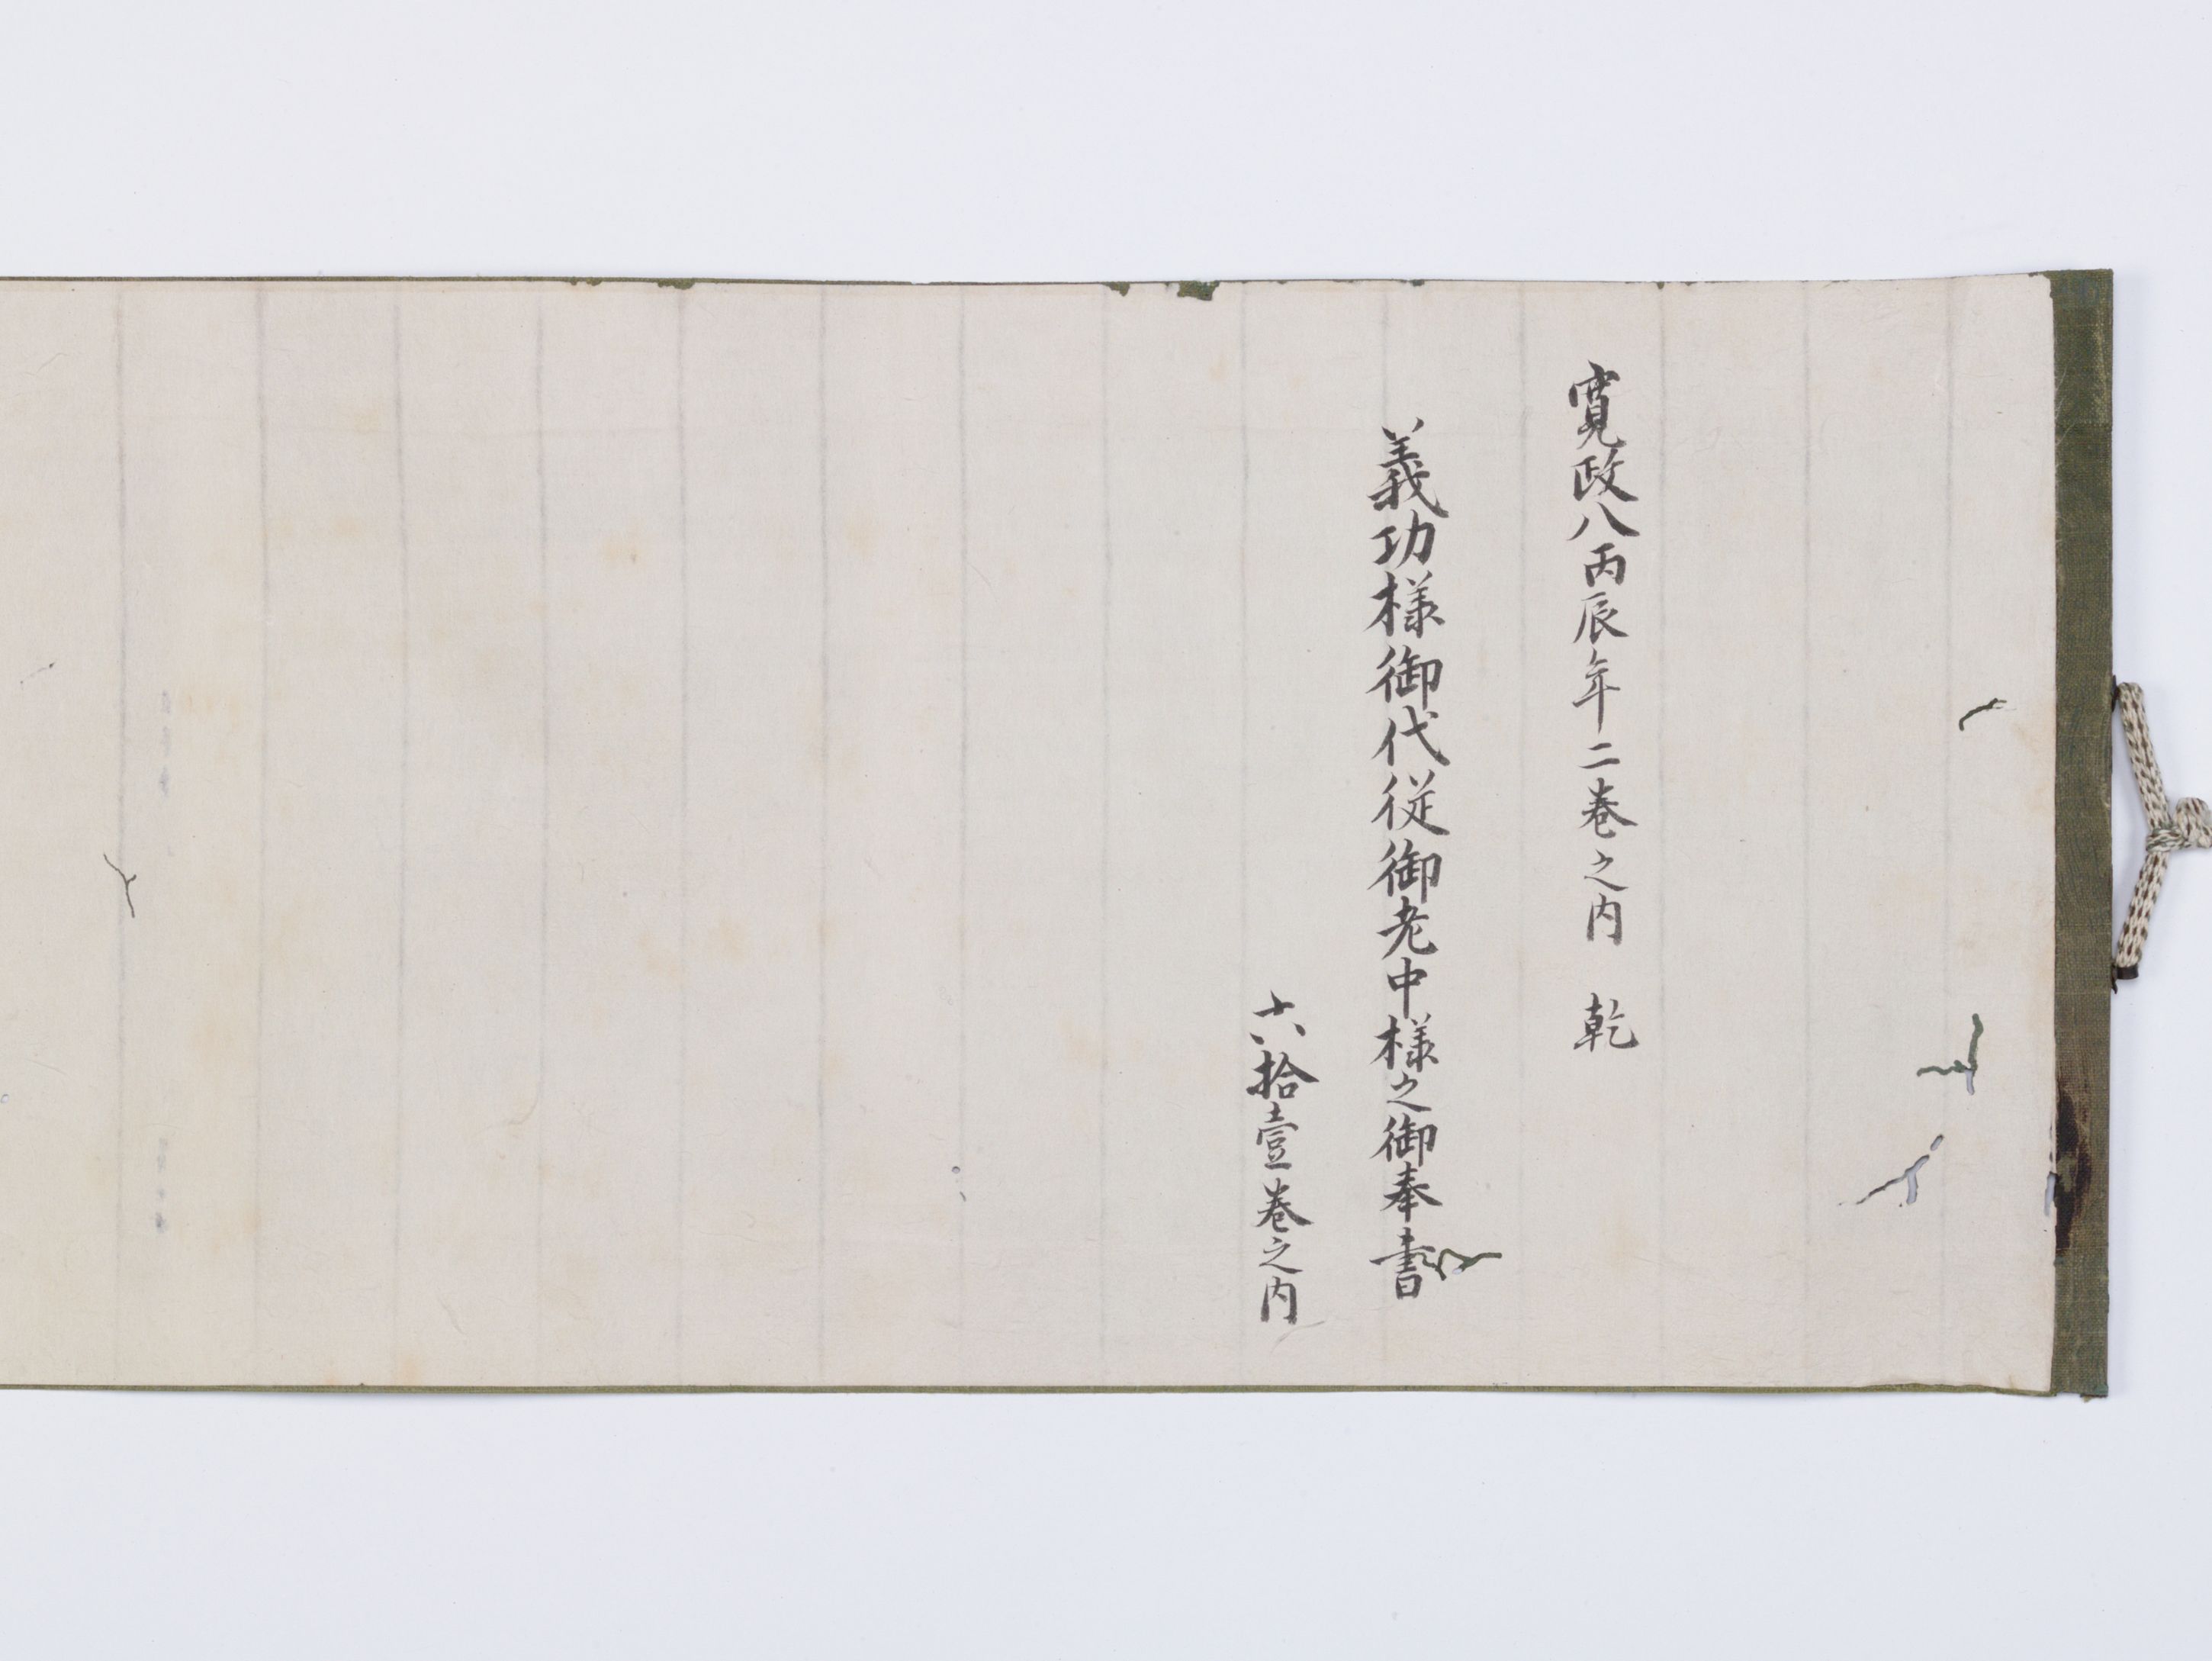 寛政八丙辰年二巻之内　乾
義功様御代従御老中様之御奉書
六拾壹巻之内